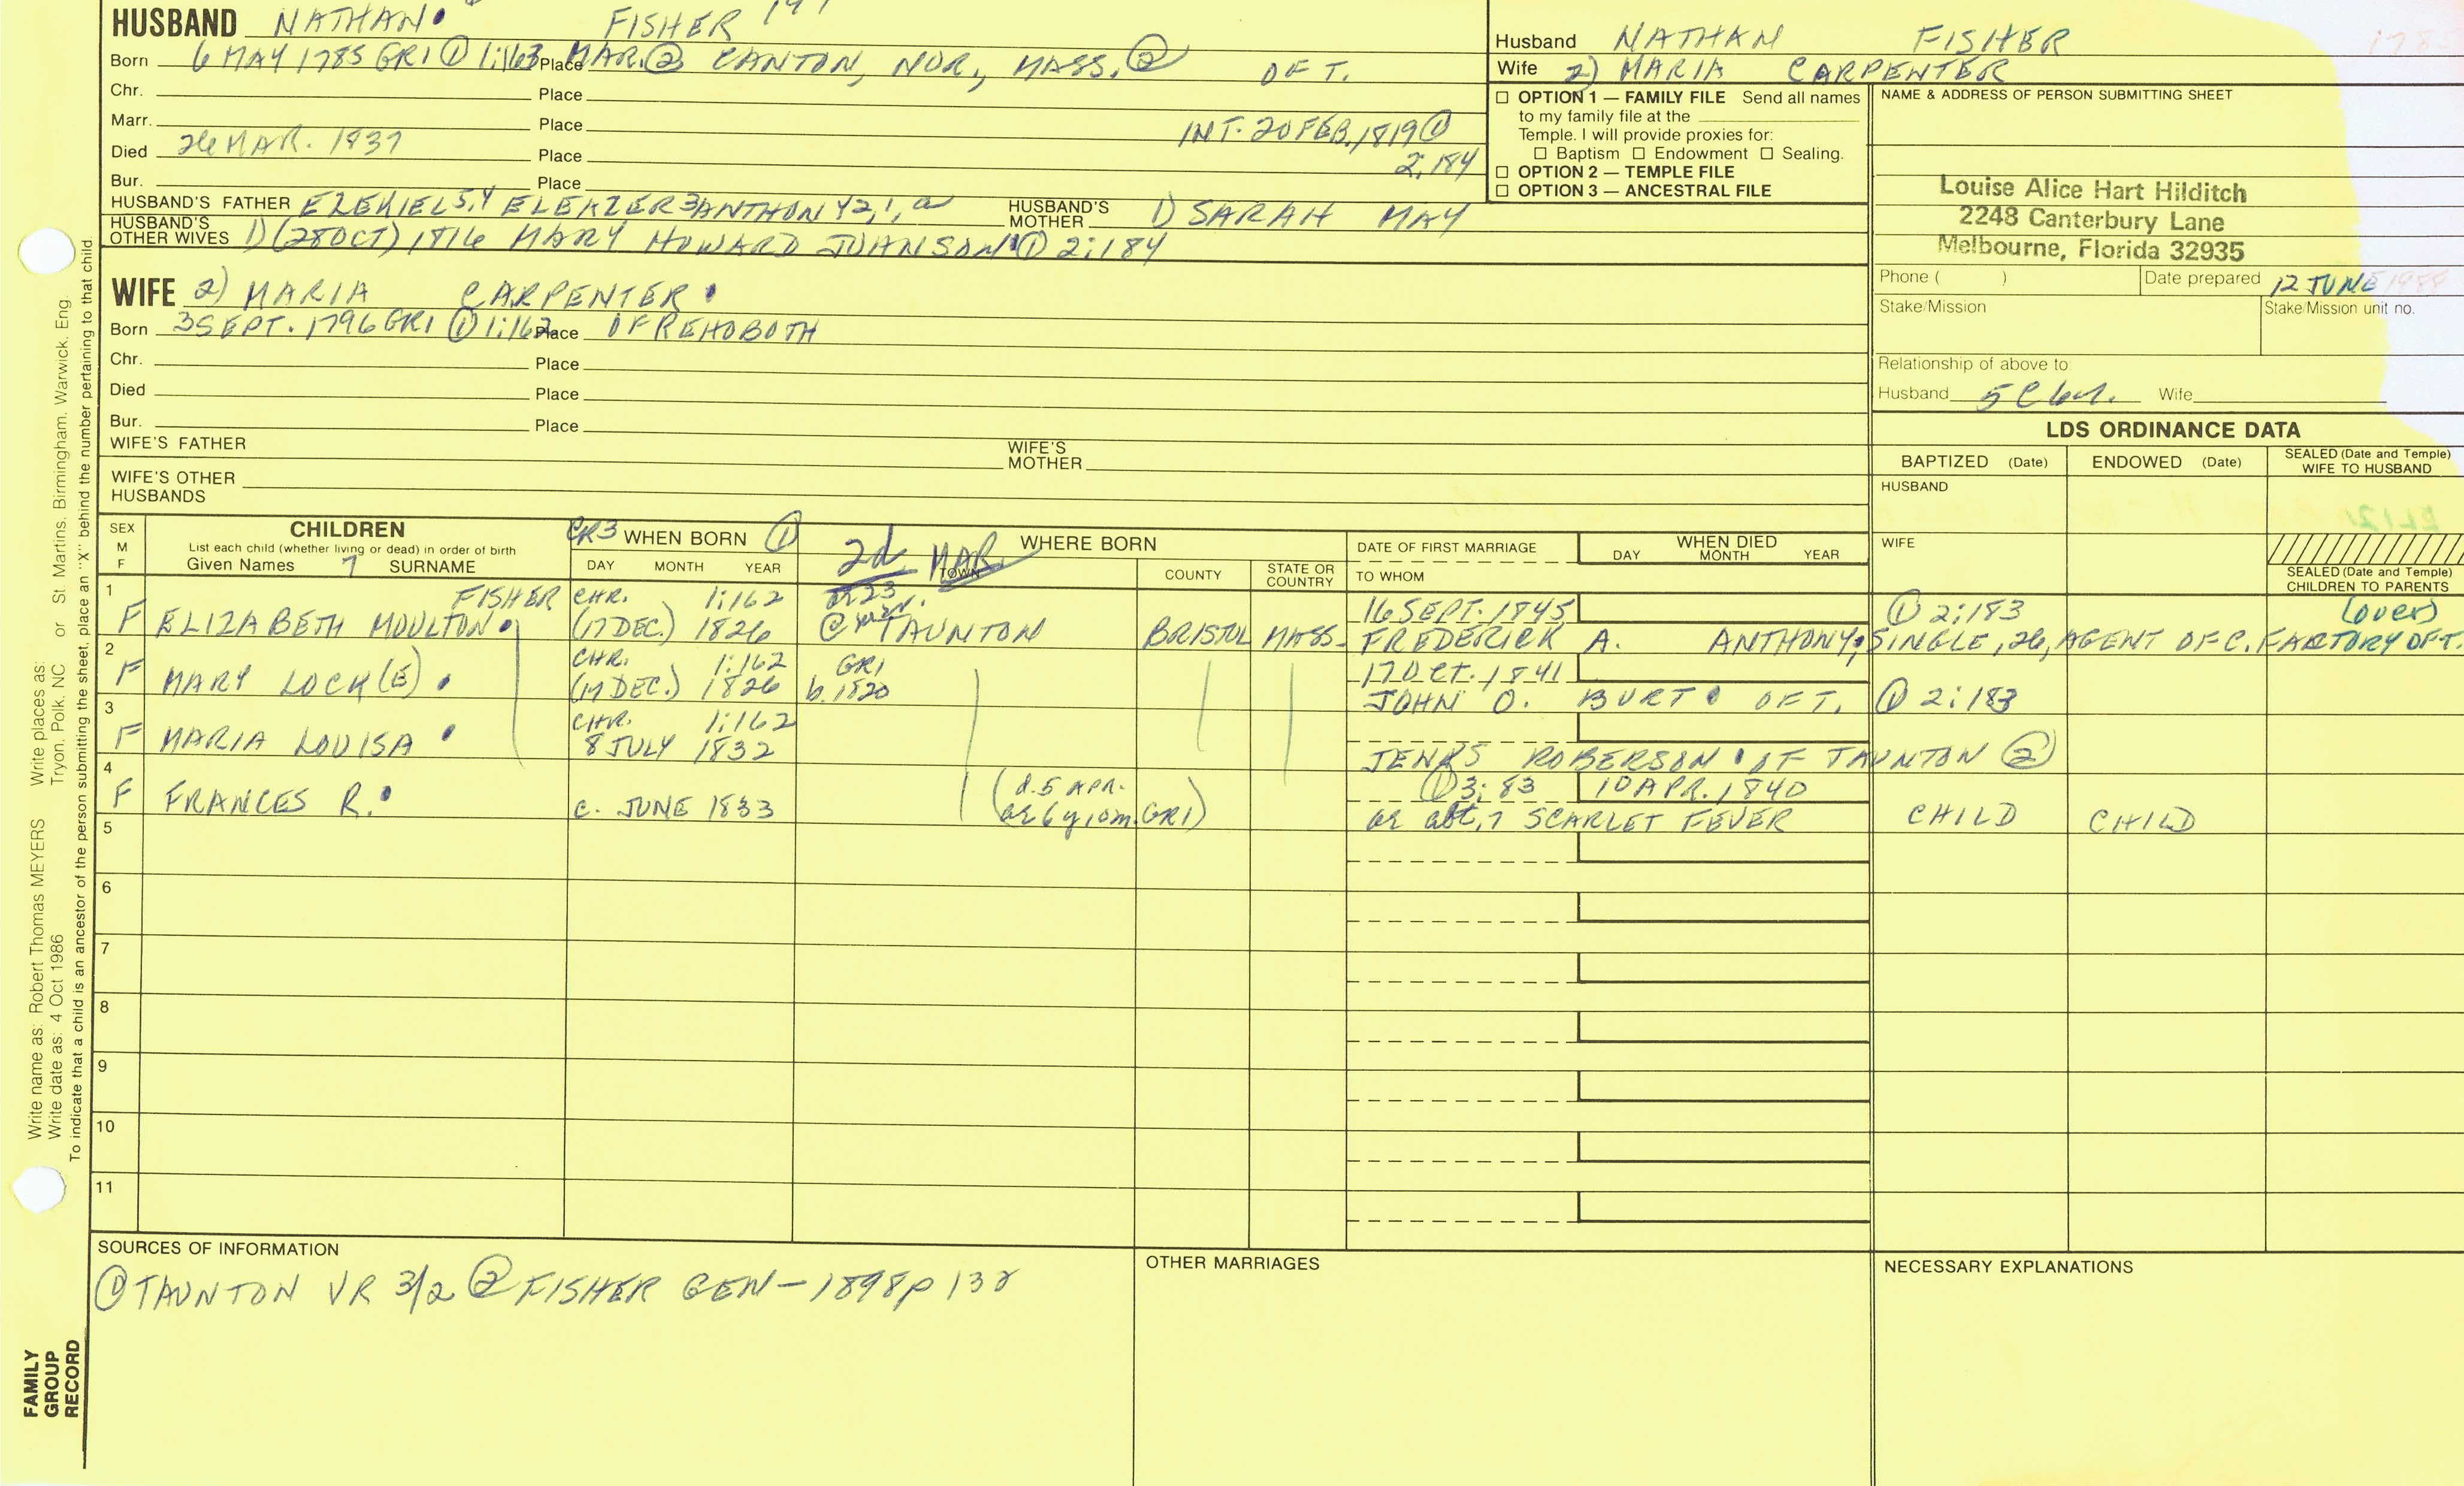 HUSBAND NATHAN FISHER
Born 6 MAY 1785 GR1 ① 1:163 Place MAR.② CANTON, NOR., MASS. ② OF T.
Chr. Place
Marr. Place INT. 20 FEB. 1819 ①
Died 26 MAR. 1837 Place 2:184
Bur. Place
HUSBAND'S FATHER EZEKIEL 5,4 ELEAZER 3 ANTHONY 2,1, HUSBAND'S MOTHER 1) SARAH MAY
HUSBAND'S OTHER WIVES 1) (28 OCT) 1816 MARY HOWARD JOHNSON ① 2:184
WIFE 2) MARIA CARPENTER
Born 3 SEPT. 1796 GR1 ① 1:162 Place OF REHOBOTH
Chr. Place
Died Place
Bur. Place
WIFE'S FATHER WIFE'S MOTHER
WIFE'S OTHER HUSBANDS
Husband NATHAN FISHER 1785
Wife 2) MARIA CARPENTER
☐ OPTION 1 — FAMILY FILE Send all names
to my family file at the
Temple. I will provide proxies for:
☐ Baptism ☐ Endowment ☐ Sealing.
☐ OPTION 2 — TEMPLE FILE
☐ OPTION 3 — ANCESTRAL FILE
NAME & ADDRESS OF PERSON SUBMITTING SHEET
Louise Alice Hart Hilditch
2248 Canterbury Lane
Melbourne, Florida 32935
Phone ( ) Date prepared 12 JUNE
Stake/Mission Stake/Mission unit no.
Relationship of above to
Husband 5C 6r. Wife
LDS ORDINANCE DATA
BAPTIZED (Date) ENDOWED (Date) SEALED (Date and Temple) WIFE TO HUSBAND
HUSBAND
WIFE
SEALED (Date and Temple) CHILDREN TO PARENTS
SEX M F
CHILDREN
List each child (whether living or dead) in order of birth
Given Names 7 SURNAME
CR3 WHEN BORN ①
DAY MONTH YEAR
2d MAR. WHERE BORN
TOWN COUNTY STATE OR COUNTRY
DATE OF FIRST MARRIAGE
TO WHOM
WHEN DIED
DAY MONTH YEAR
1 FISHER CHR. 1:162 or 23 16 SEPT. 1845 ① 2:183 (over)
F ELIZABETH MOULTON (17 DEC.) 1826 TAUNTON BRISTOL MASS. FREDERICK A. ANTHONY, SINGLE, 26, AGENT OF C. FACTORY OF T.
2 CHR. 1:162 GR1 17 OCT. 1841
F MARY LOCK(E) (17 DEC.) 1826 b. 1820 JOHN O. BURT OF T. ① 2:183
3 CHR. 1:162
F MARIA LOUISA 8 JULY 1832 JENKS ROBERSON OF TAUNTON ②
4 (d. 5 APR. ① 3:83 10 APR. 1840
F FRANCES R. c. JUNE 1833 ae 6 y 10 m. GR1) ae abt. 7 SCARLET FEVER CHILD CHILD
5
6
7
8
9
10
11
SOURCES OF INFORMATION
① TAUNTON VR 3/2 ② FISHER GEN - 1898 p 138
OTHER MARRIAGES
NECESSARY EXPLANATIONS
Write name as: Robert Thomas MEYERS Write places as: Tryon, Polk, NC or St. Martins, Birmingham, Warwick, Eng.
Write date as: 4 Oct 1986
To indicate that a child is an ancestor of the person submitting the sheet, place an "X" behind the number pertaining to that child.
FAMILY GROUP RECORD